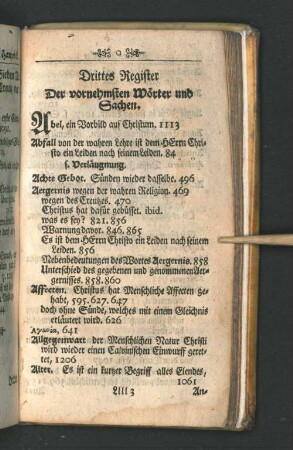 Drittes Register
Der vornehmsten Wörter und
Sachen.
Abel, ein Vorbild auf Christum. 1113
Abfall von der wahren Lehre ist dem HErrn Chri-
sto ein Leiden nach seinem Leiden. 84
s. Verläugnung.
Achte Gebot. Sünden wieder dasselbe. 496
Aergernis wegen der wahren Religion. 469
wegen des Creutzes. 470
Christus hat dafür gebüsset. ibid.
was es sey? 821. 856
Warnung davor. 846. 865
Es ist dem HErrn Christo ein Leiden nach seinem
Leiden. 856
Nebenbedeutungen des Wortes Aergernis. 858
Unterschied des gegebenen und genommenen Aer-
gernisses. 858. 860
Affecten. Christus hat Menschliche Affecten ge-
habt, 595. 627. 647
doch ohne Sünde, welches mit einem Gleichnis
erläutert wird. 626
Ἀγωνία, 641
Allgegenwart der Menschlichen Natur Christi
wird wieder einen Calvinischen Einwurff geret-
tet, 1206
Alter. Es ist ein kurtzer Begriff alles Elendes,
1061
Llll 3
An-